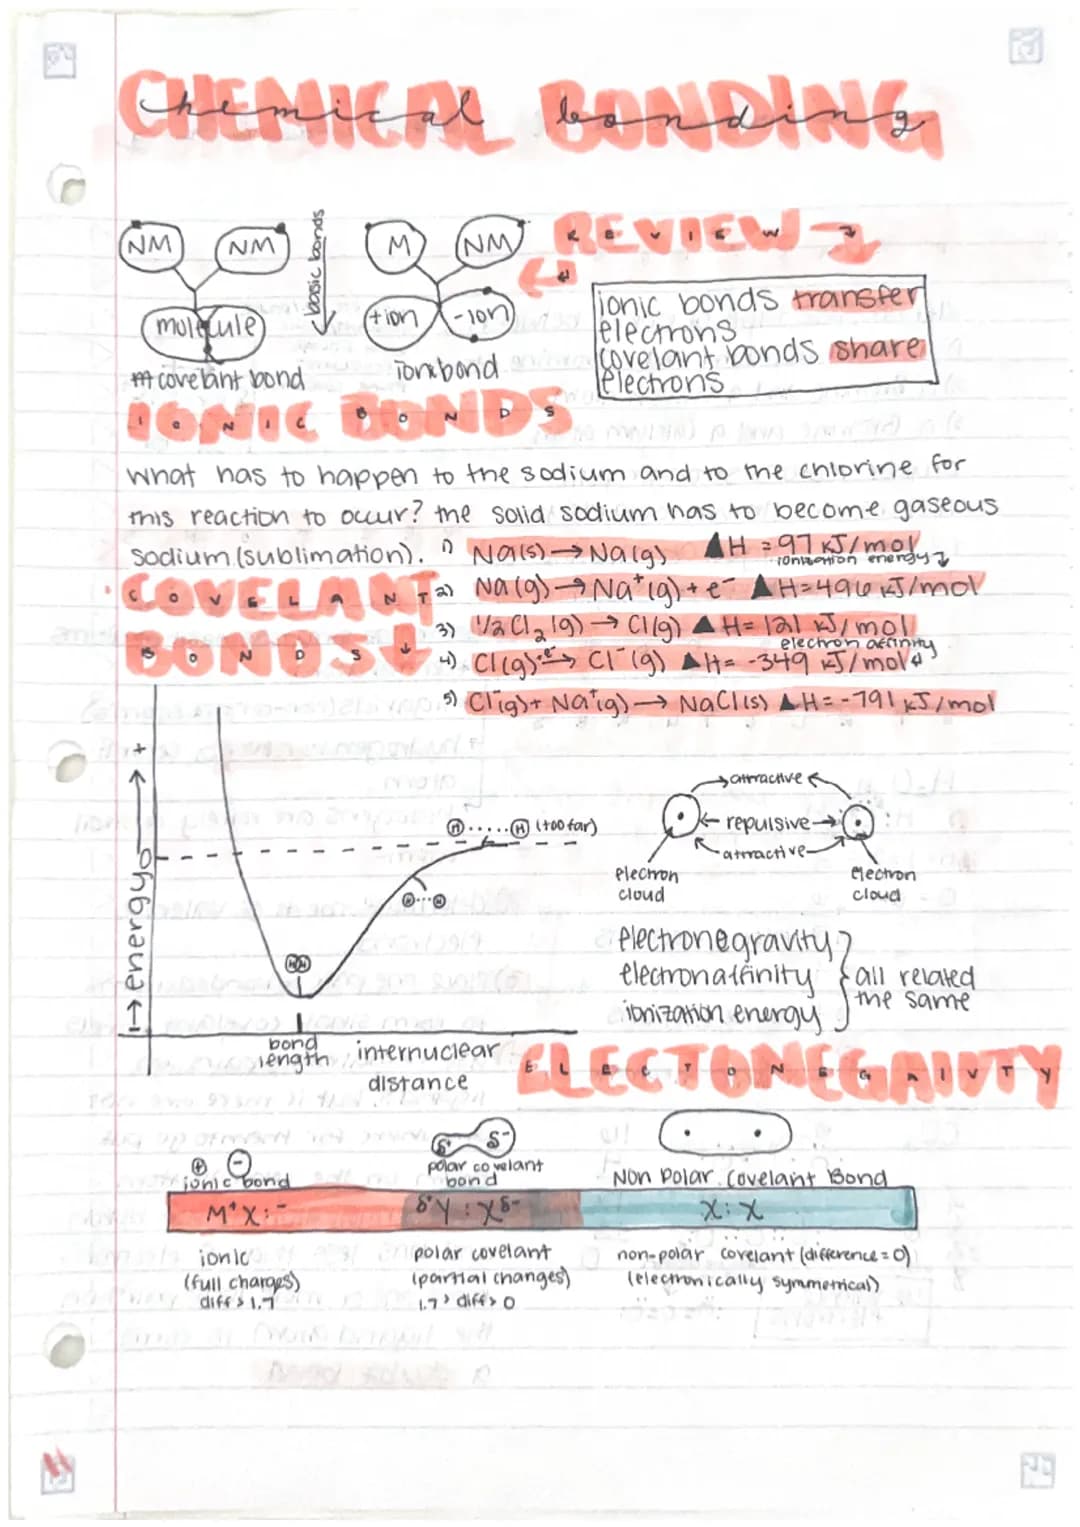 Chemical bonding
CHEMICAL BONDING
NM NM
molecule
covelant bond
basic bonds
M NM
+ion -ion
ionic bond
REVIEW
ionic bonds transfer
electrons
covelant bonds share
electrons
IONIC BONDS
what has to happen to the sodium and to the chlorine for
this reaction to occur? the solid sodium has to become gaseous
sodium (sublimation).
1) Na(s) → Na(g) ▲H = 97 kJ/mol
ionization energy
2) Na(g) → Na⁺(g) + e⁻ ▲H=496 kJ/mol
3) 1/2 Cl₂ (g) → Cl(g) ▲H= 121 kJ/mol
electron affinity
4) Cl(g) +e⁻ → Cl⁻(g) ▲H= -349 kJ/mol
5) Cl⁻(g) + Na⁺(g) → NaCl(s) ▲H= -791 kJ/mol
COVELANT
BONDS
energy
+
0
H.....H (too far)
H...H
HH
bond
length
internuclear
distance
attractive
repulsive
attractive
electron
cloud
electron
cloud
electronegravity
electronaffinity
ionization energy
all related
the same
ELECTONEGAIVTY
+ -
ionic bond
δ⁺ δ⁻
polar covelant
bond
Non Polar Covelant Bond
M⁺X:⁻
δ⁺Y : Xδ⁻
X: X
ionic
(full charges)
diff > 1.7
polar covelant
(partial changes)
1.7 > diff > 0
non-polar covelant (difference = 0)
(electronically symmetrical)